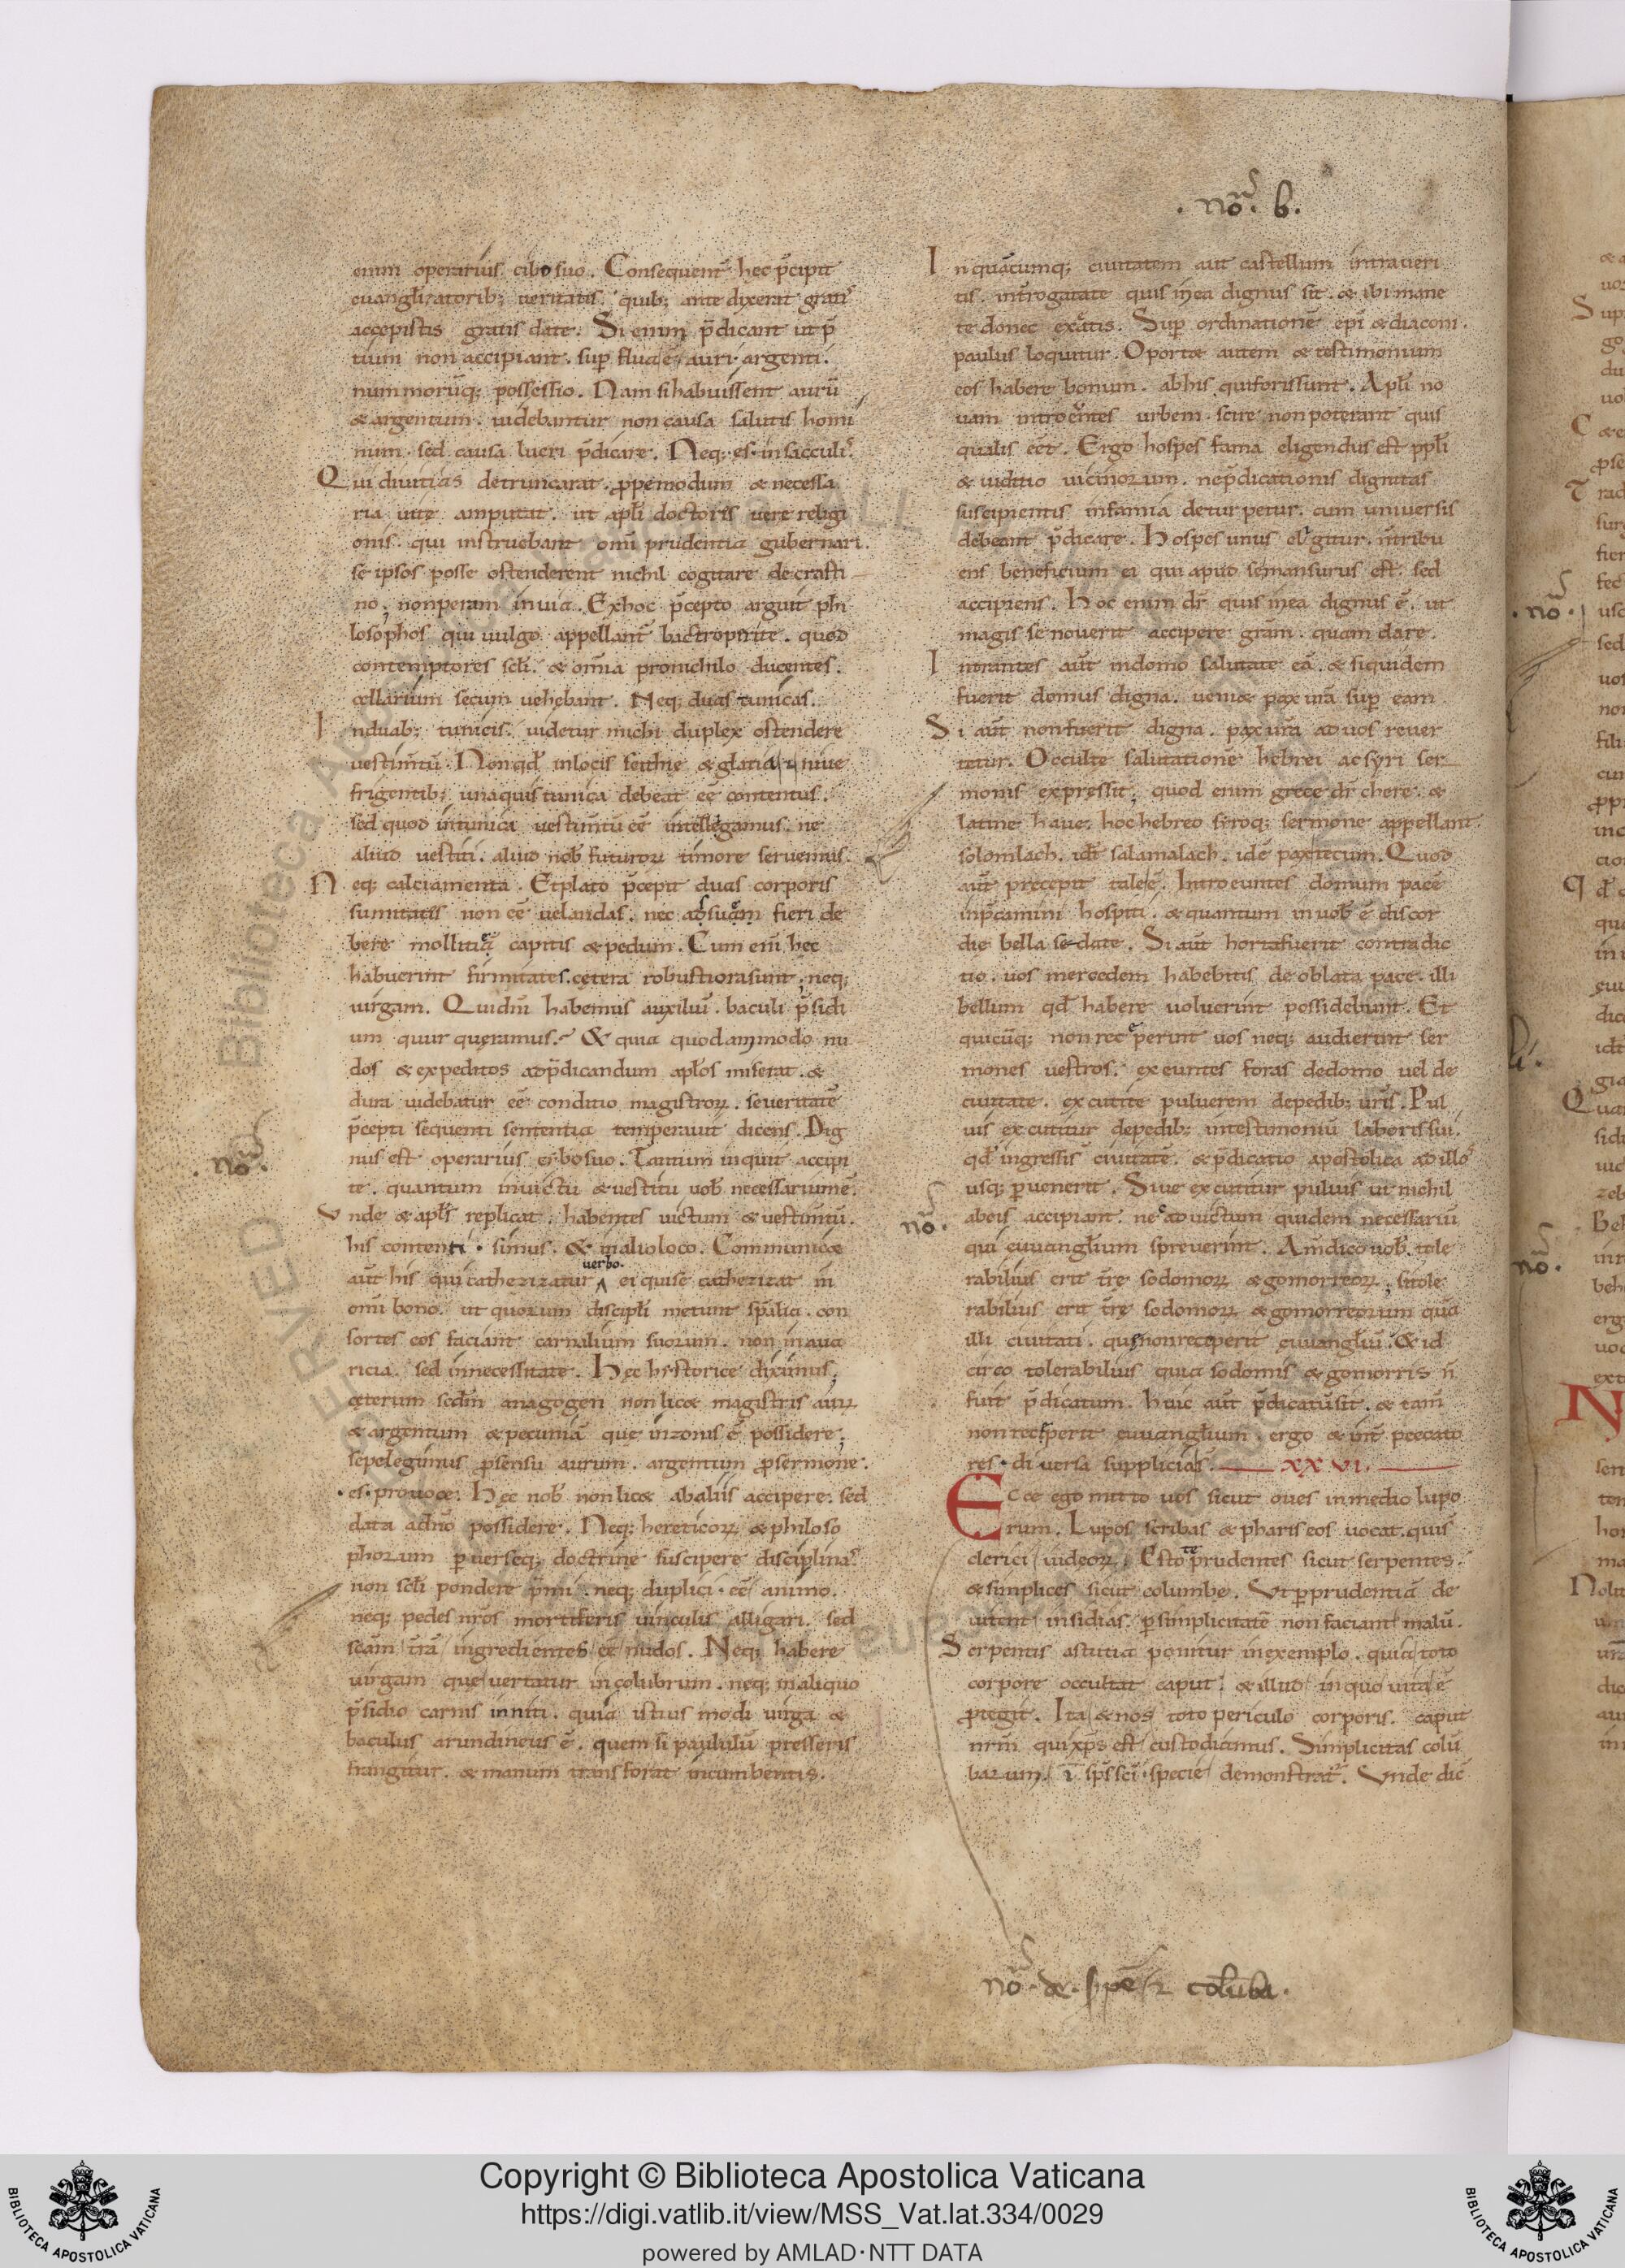 .nō.b.
enim operarius cibo suo. Consequent̄ hec p̄cipit
euangl̄izatorib; ueritatis. quib; ante dixerat gratˢ
accepistis gratis date. Si enim p̄dicant ut p̄
tium non accipiant. sup̄flua ē auri. argenti.
nummorūq; possessio. Nam si habuissent aurū
& argentum. uidebantur non causa salutis homi
num. sed causa lucri p̄dicare. Neq; es. in sacculiˢ.
Qui diuitias detruncarat. ꝓpemodum & necessa
ria uite amputat. ut apl̄i doctoris uere religi
onis. qui instruebant om̄i prudentia gubernari.
se ipsos posse ostenderent nichil cogitare de crasti
no; non peram in uia. Ex hoc p̄cepto arguit phi
losophos qui uulgo appellant̄ bactroperite. quod
contemptores scl̄i. & om̄ia pro nichilo ducentes.
cellarium secum uehebant. Neq; duas tunicas.
In duab; tunicis. uidetur michi duplex ostendere
uestim̄tū. Non qđ in locis scithie & glatia niue
frigentib; una quis tunica debeat eē contentus.
sed quod in tunica uestim̄tū eē intellegamus. ne
aliud uestiti. aliud nob̄ futuroꝝ timore seruemus.
Neq; calciamenta. Et plato p̄cepit duas corporis
sumitates non eē uelandas. nec adsuam fieri de
bere mollitiā capitis & pedum. Cum eni hec
habuerint firmitates. cetera robustiora sunt; neq;
uirgam. Qui dn̄i habemus auxiliū. baculi p̄sidi
um quur queramus. & quia quodammodo nu
dos & expeditos ad p̄dicandum apl̄os miserat. &
dura uidebatur eē conditio magistroꝝ. seueritatē
p̄cepti sequenti sententia temperauit dicens. Dig
nus est operarius cibo suo. Tantum inquit accipi
te. quantum in uictu & uestitu uob̄ necessarium ē.
Vnde & apl̄s replicat. habentes uictum & uestim̄tū.
his contenti. simus. & in alio loco. Communic&
aut̄ his qui catherizatur uerbo. ei qui se catherizat in
om̄i bono. ut quorum discipl̄i metunt spalia. con
sortes eos faciant carnalium suorum. non in aua
ricia. sed in necessitate. Hec hystorice diximus;
ceterum scđm anagogen non lic& magistris auꝝ
& argentum & pecuniā que in zonis ē possidere;
sepe legimus ꝓ sensu aurum. argentum ꝓ sermone.
.es. pro uoce. Hec nob̄ non lic& ab aliis accipere. sed
data a dn̄o possidere. Neq; hereticoꝝ & philoso
phorum ꝑuerseq; doctrine suscipere disciplinaˢ.
non scl̄i pondere p̄mi. neq; duplici. eē animo.
neq; pedes nr̄os mortiferis uinculis alligari. sed
scām t̄rā ingredientes eē nudos. Neq; habere
uirgam que uertatur in colubrum. neq; in aliquo
p̄sidio carnis inniti. quia istius modi uirga &
baculus arundineus ē. quem si paululū presseris
frangitur. & manum transforat incumbentis.
.nō.
In quacumq; ciuitatem aut castellum intraueri
tis. int̄rogatate quis in ea dignus sit. & ibi mane
te donec exeatis. Sup̄ ordinationē epī & diaconi.
paulus loquitur. Oport& autem & testimonium
eos habere bonum. ab his qui foris sunt. Apl̄i no
uam introeuntes urbem. scire non poterant quis
qualis eēt. Ergo hospes fama eligendus est ppl̄i
& iuditio uicinorum. ne p̄dicationis dignitas
suscipientis infamia deturpetur. cum uniuersis
debeant p̄dicare. Hospes unus eligitur. n̄ tribu
ens beneficium ei qui apud se mansurus est. sed
accipiens. Hoc enim dr̄ quis in ea dignus ē. ut
magis se nouerit accipere grām. quam dare.
Intrantes aut̄ in domo salutate eā. & siquidem
fuerit domus digna. ueni& pax ur̄a sup̄ eam
Si aut̄ non fuerit digna. pax ur̄a ad uos reuer
tetur. Occulte salutationē hebrei ac syri ser
monis expressit; quod enim grece dr̄ chere. &
latine haue. hoc hebreo siroq; sermone appellant̄
solomlach. idē salamalach. idē pax tecum. Quod
aut̄ precepit tale ē. Introeuntes domum pacē
inp̄camini hospiti. & quantum in uob̄ ē discor
die bella sedate. Si aut̄ horta fuerit contradic
tio. uos mercedem habebitis de oblata pace. illi
bellum qđ habere uoluerint possidebunt. Et
quicūq; non receperint uos neq; audierint ser
mones uestros. exeuntes foras de domo uel de
ciuitate. excutite puluerem de pedib; ur̄is. Pul
uis excutitur de pedib; in testimoniū laboris sui.
qđ ingressis ciuitatē. & p̄dicatio apostolica ad illoˢ
usq; ꝑuenerit. Siue excutitur puluis ut nichil
ab eis accipiant. nec ad uictum quidem necessariū
qui euuangl̄ium spreuerint. Am̄ dico uob̄. tole
rabilius erit t̄re sodomoꝝ & gomorreoꝝ; si tole
rabilius erit t̄re sodomoꝝ & gomorreorum qua
illi ciuitati. que non receperit euuangl̄iū. & id
circo tolerabilius quia sodomis & gomorris n̄
fuit p̄dicatum. huic aut̄ p̄dicatū sit. & tam̄
non receperit euuangl̄ium. ergo & int̄ peccato
res. diuersa supplicia s̄. XXVI.
Ecce ego mitto uos sicut oues in medio lupo
rum. Lupos scribas & phariseos uocat. quiˢ
clerici iudeoꝝ. Estote prudentes sicut serpentes.
& simplices sicut columbe. Vt ꝑ prudentiā de
uitent insidias. ꝑ simplicitatē non faciant malū.
Serpentis astutia ponitur in exemplo. quia toto
corpore occultat caput. & illud in quo uita ē
ꝓtegit. Ita & nos toto periculo corporis. caput
nr̄m qui xp̄s est custodiamus. Simplicitas colū
barum. ī sp̄s scī. specie demonstratʳ. Vnde dic̄
nō.
nō. de. spē colūba.
Copyright © Biblioteca Apostolica Vaticana
https://digi.vatlib.it/view/MSS_Vat.lat.334/0029
powered by AMLAD·NTT DATA
BIBLIOTECA APOSTOLICA VATICANA
BIBLIOTECA APOSTOLICA VATICANA